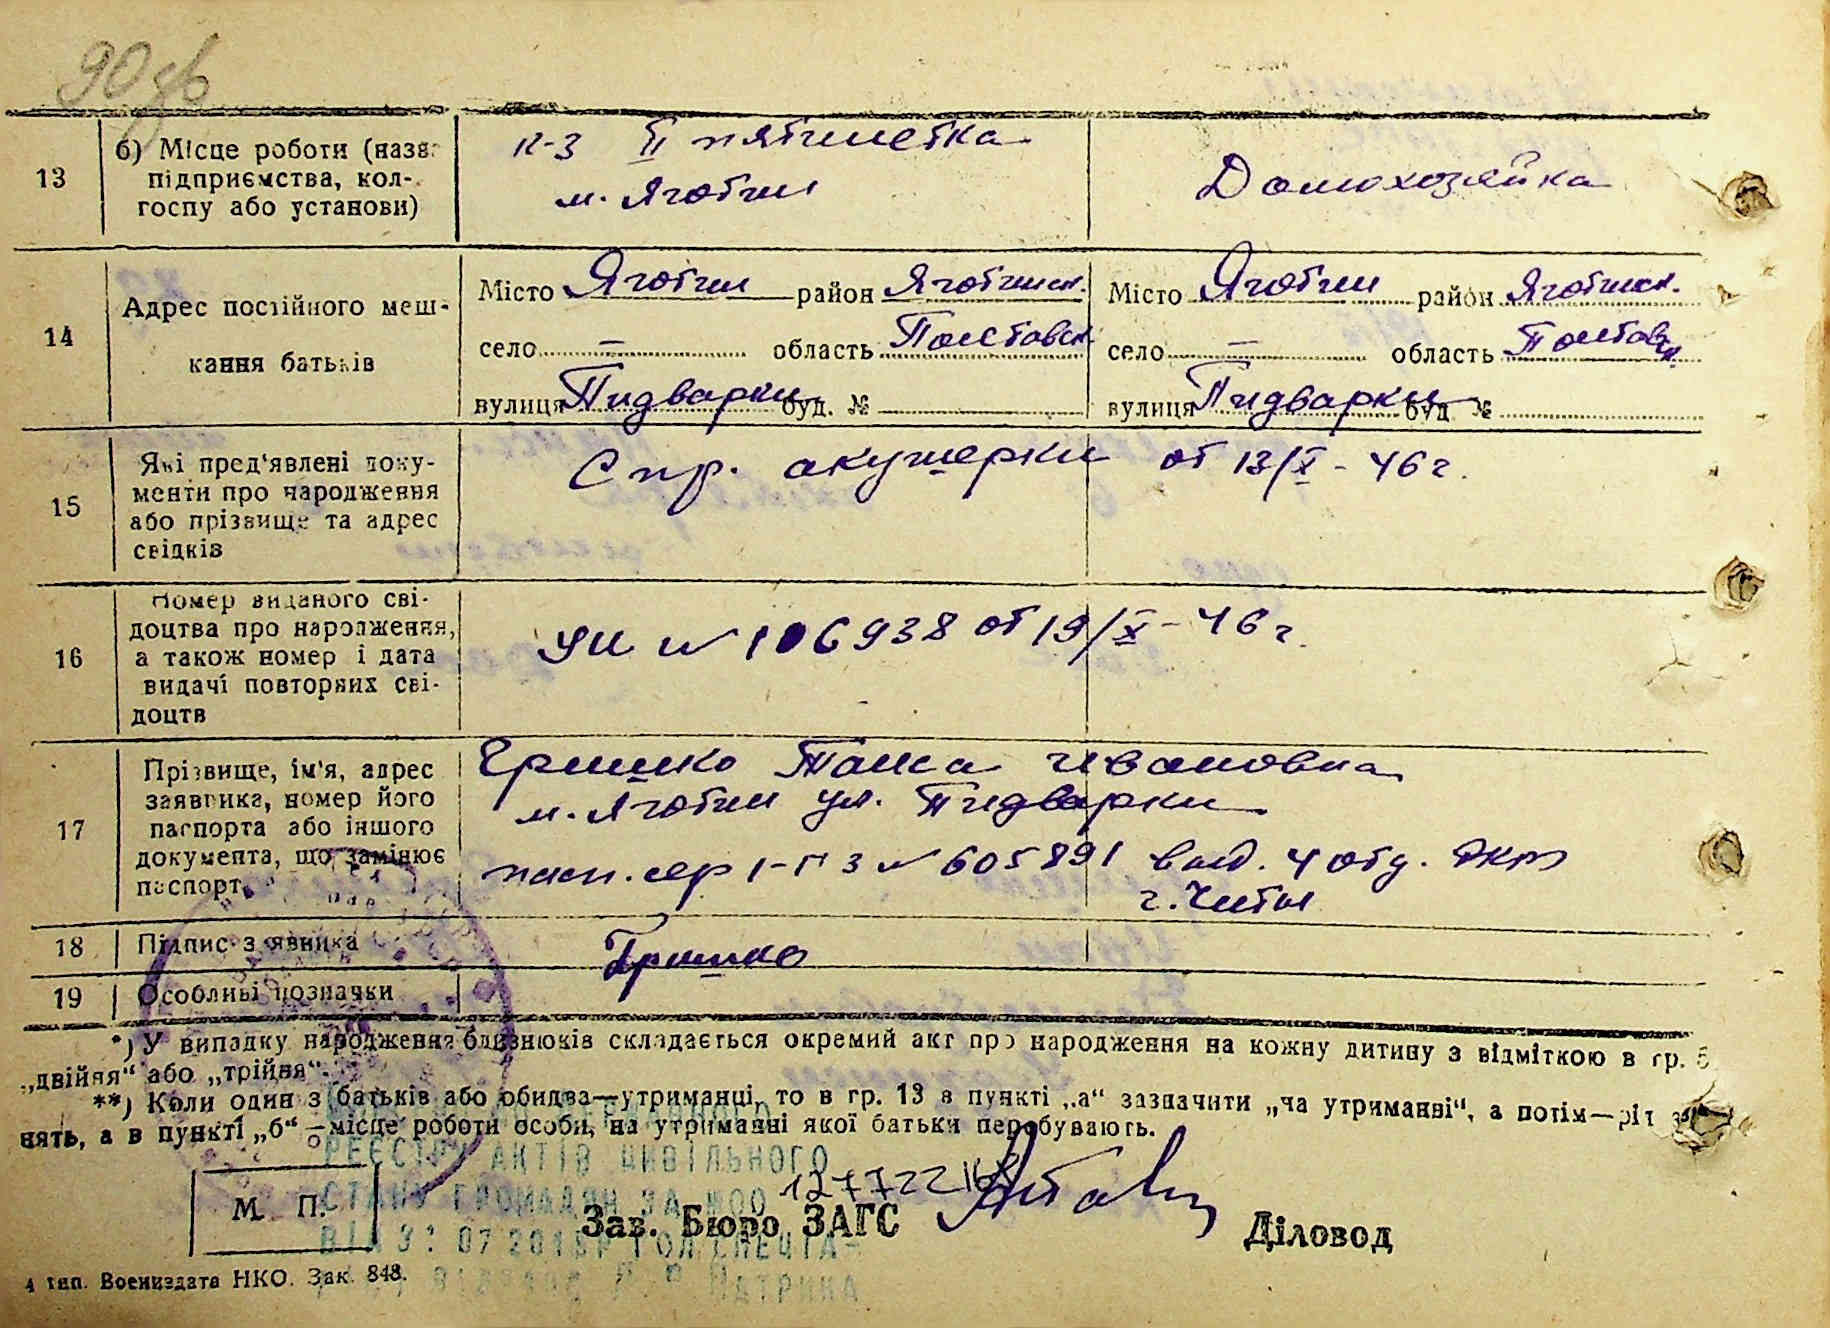 90 зв
13
б) Місце роботи (назва
підприємства, кол-
госпу або установи)
к-з II пятилетка
м. Яготин
Домохозяйка
14
Адрес постійного меш-
кання батьків
Місто Яготин район Яготинск.
село — область Полтавск.
вулиця Пидварки буд. №
Місто Яготин район Яготинск.
село — область Полтавск.
вулиця Пидварки буд. №
15
Які пред'явлені доку-
менти про народження
або прізвище та адрес
свідків
Спр. акушерки от 13/X - 46 г.
16
Номер виданого сві-
доцтва про народження,
а також номер і дата
видачі повторних сві-
доцтв
УИ № 106938 от 19/X - 46 г.
17
Прізвище, ім'я, адрес
заявника, номер його
паспорта або іншого
документа, що замінює
паспорт.
Гришко Ивановна
м. Яготин ул. Пидварки
пасп. сер I-ГЗ № 605891 выд. 4 отд.
г. Читы
18
Підпис заявника
Гришко
19
Особливі позначки
*) У випадку народження близнюків складається окремий акт про народження на кожну дитину з відміткою в гр. 5
„двійня“ або „трійня“.
**) Коли один з батьків або обидва—утриманці, то в гр. 13 в пункті „а“ зазначити „на утриманні“, а потім—рід
нять, а в пункті „б“—місце роботи особи, на утриманні якої батьки перебувають.
РЕЄСТРУ АКТІВ ЦИВІЛЬНОГО
СТАНУ ГРОМАДЯН ЗА №00
12772216
М. П.
Зав. Бюро ЗАГС
Діловод
4 тип. Воениздата НКО. Зак. 848.